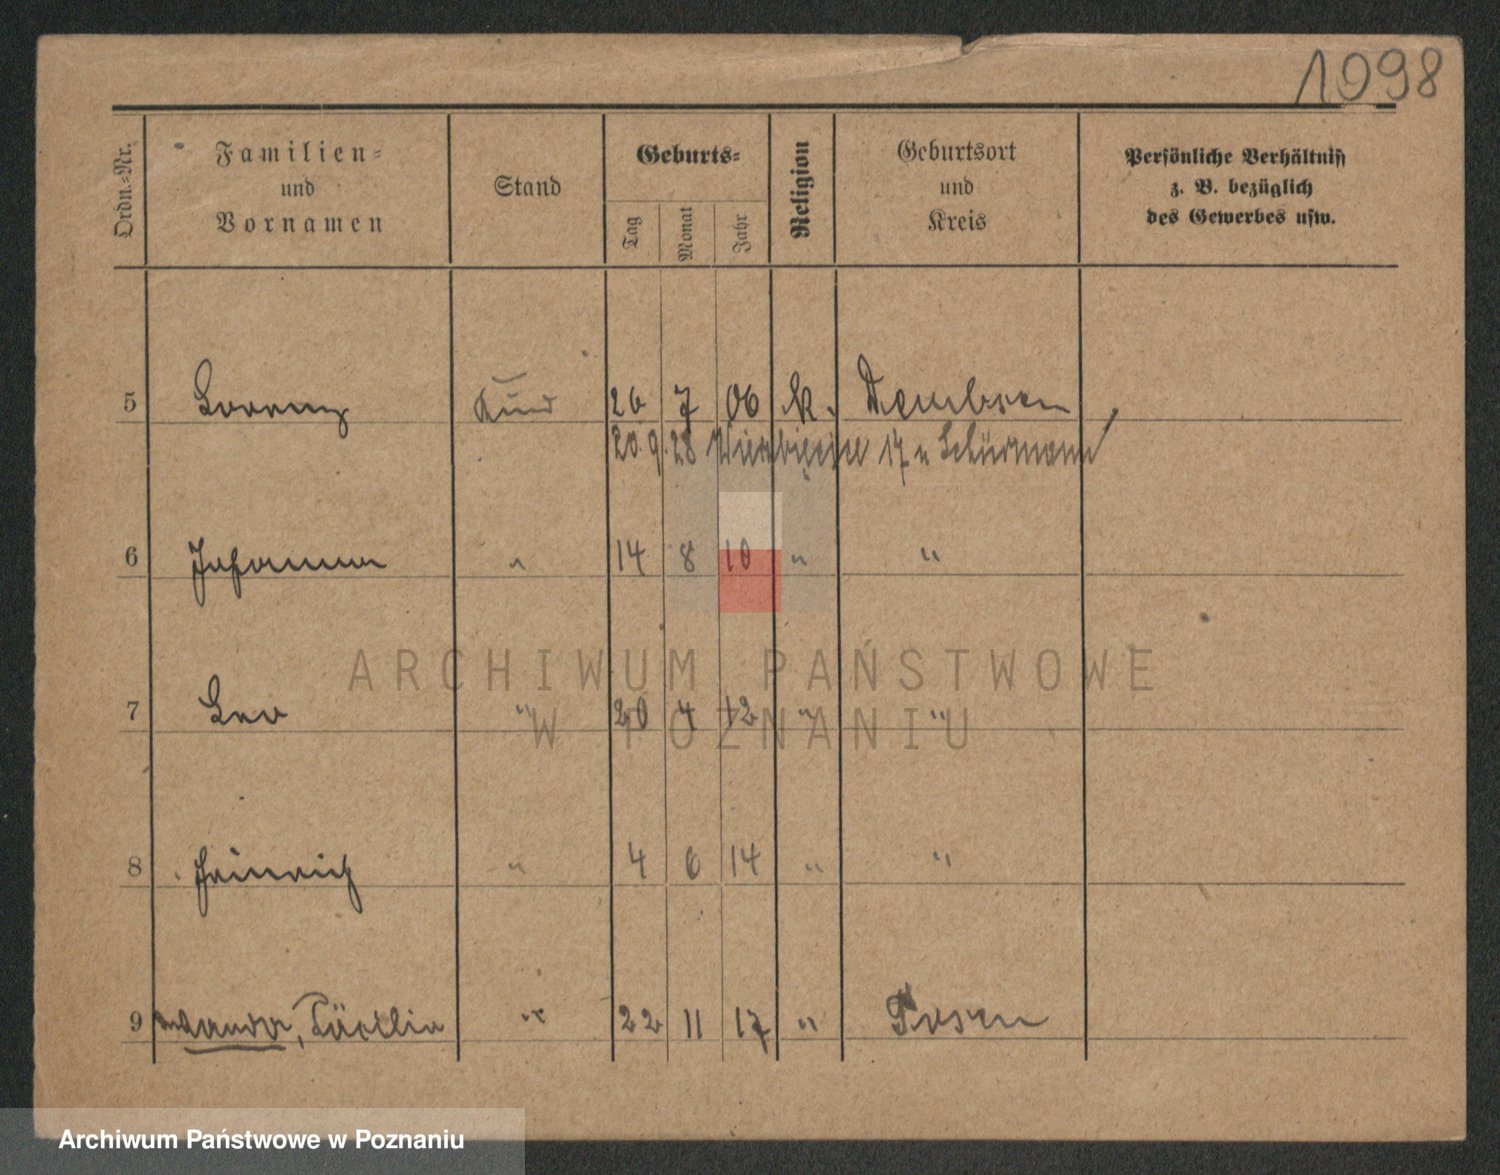 1098
Ordn.-Nr.
Familien-
und
Vornamen
Stand
Geburts-
Tag
Monat
Jahr
Religion
Geburtsort
und
Kreis
Persönliche Verhältniss
z. B. bezüglich
des Gewerbes usw.
5 Lorenz Kind 26 7 06 k. Dembsen
20.9.28 17 Schürmann
6 Johanna " 14 8 10 " "
7 Leo " 20 4 12 " "
8 Heinrich " 4 6 14 " "
9 Wanda, Cäcilia " 22 11 17 " Posen
ARCHIWUM PAŃSTWOWE
W POZNANIU
Archiwum Państwowe w Poznaniu